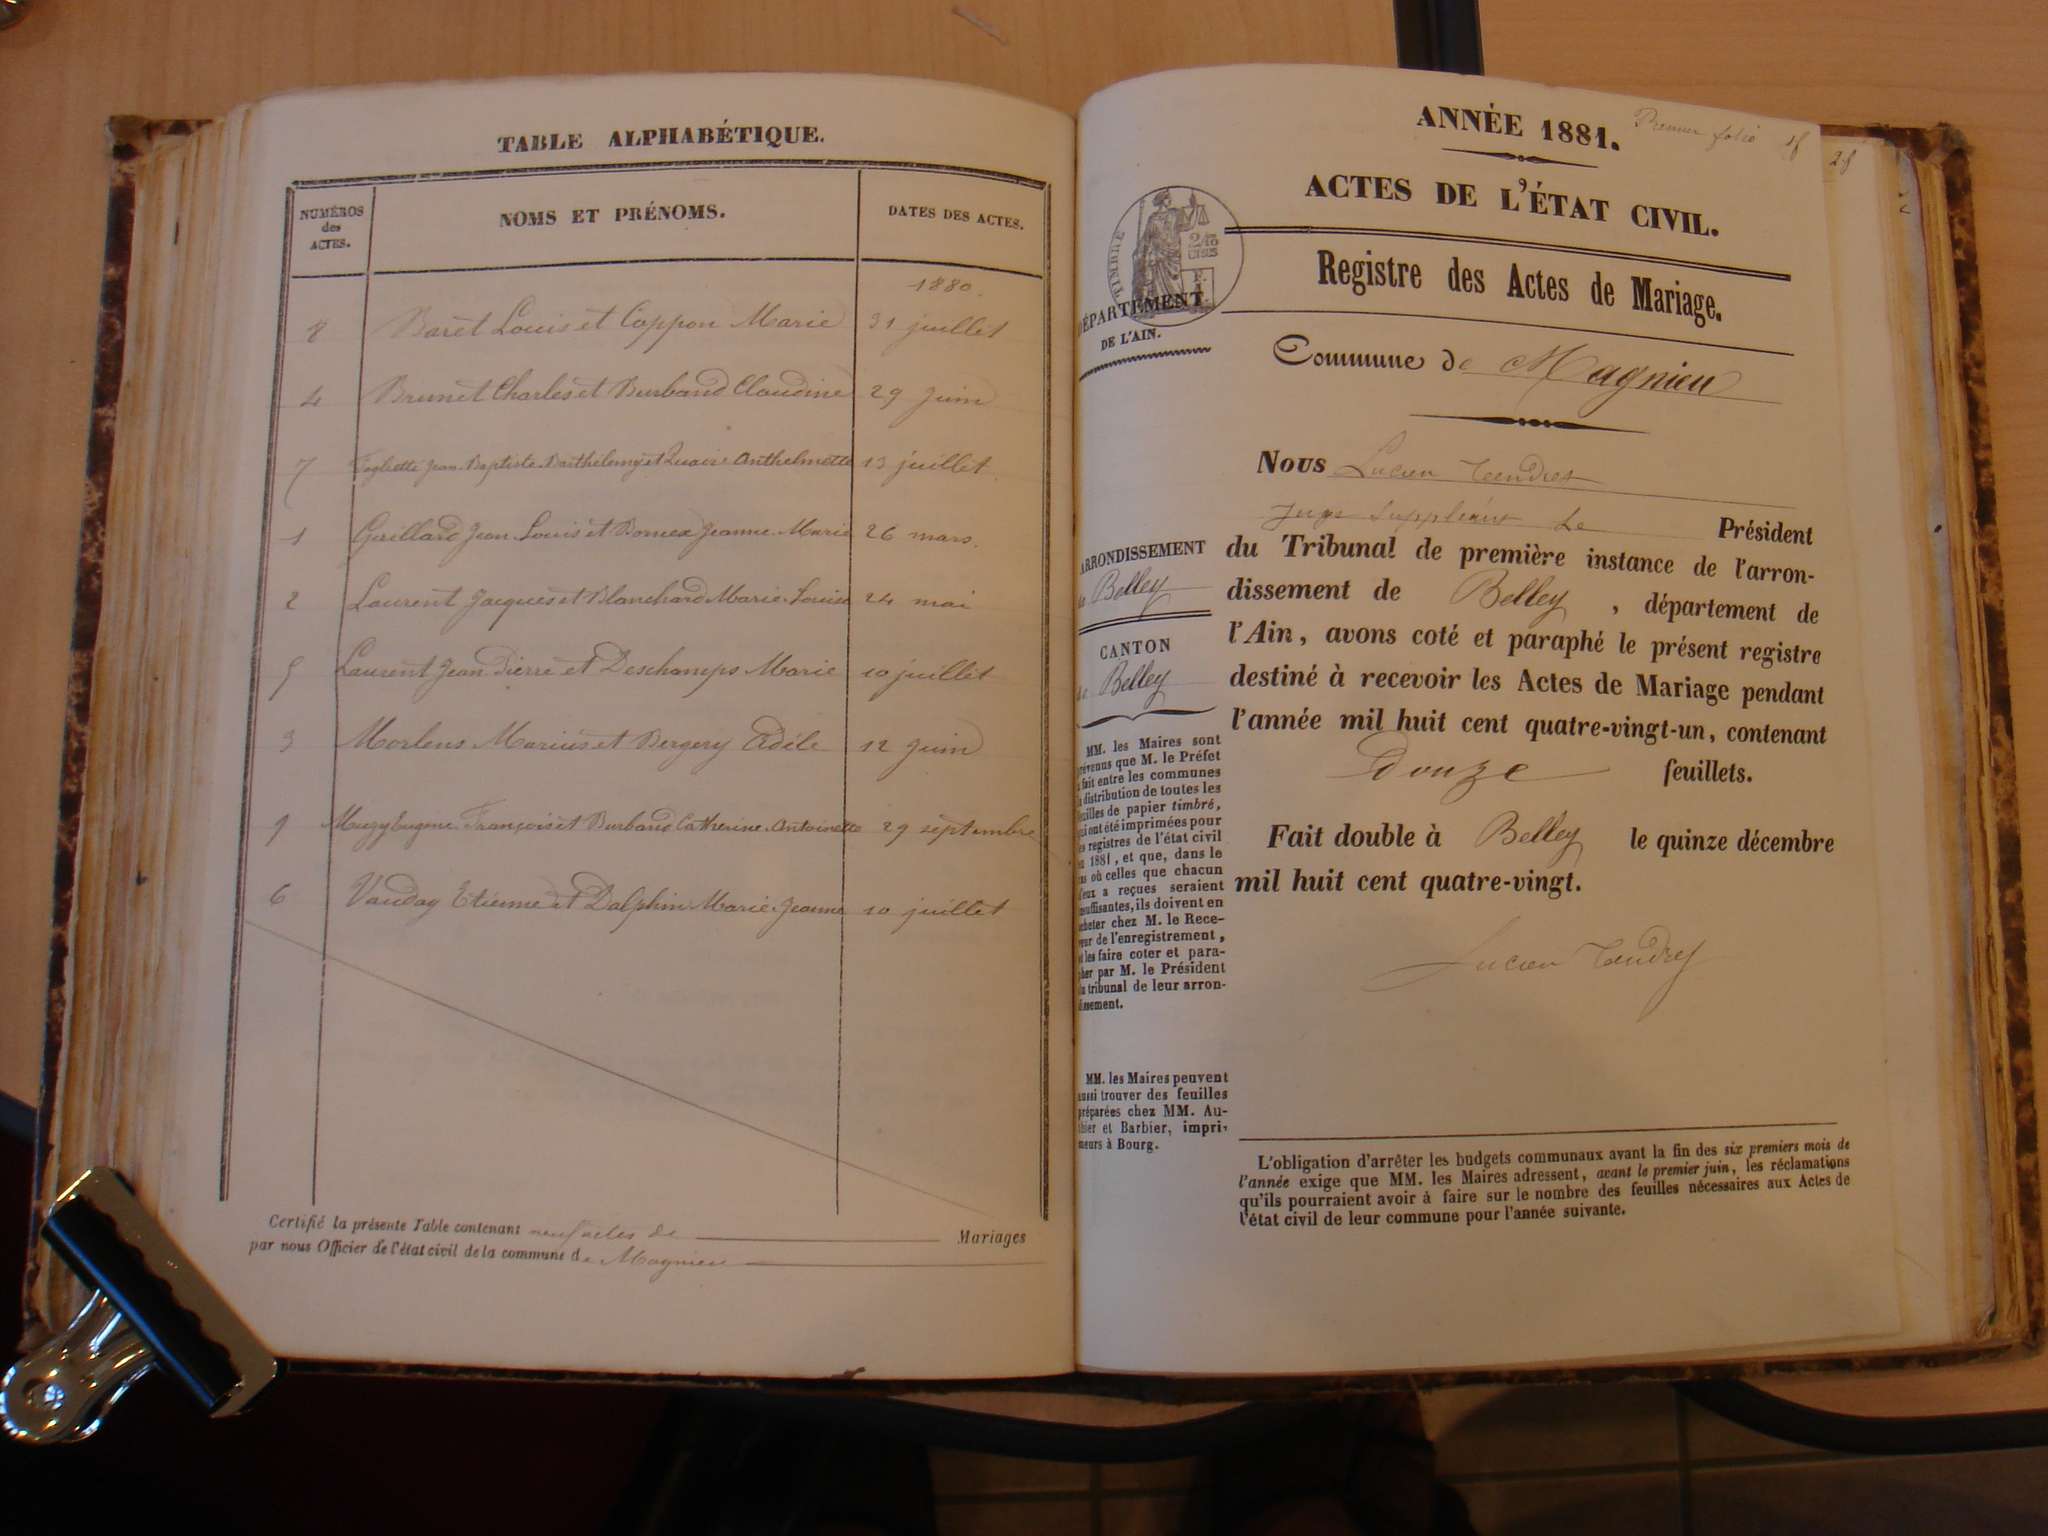 TABLE ALPHABÉTIQUE.
NUMÉROS des ACTES. NOMS ET PRÉNOMS. DATES DES ACTES.
1880.
8 Baret Louis et Coppon Marie 31 juillet
4 Brunet Charles et Burband Claudine 29 juin
7 Jean Baptiste Barthélemy et Anthelmette 13 juillet
1 Jean Louis et Bornex Jeanne Marie 26 mars.
2 Laurent Jacques et Blanchard Marie Louise 24 mai
5 Laurent Jean Pierre et Deschamps Marie 10 juillet
3 Morlens Marius et Bergery Adèle 12 juin
9 Muzy Eugène François et Burband Catherine Antoinette 29 septembre
6 Vanday Etienne et Dalphin Marie Jeanne 10 juillet
Certifié la présente Table contenant neuf actes de Mariages
par nous Officier de l'état civil de la commune de Magnieu
Premier folio
ANNÉE 1881.
ACTES DE L'ÉTAT CIVIL.
TIMBRE
DÉPARTEMENT
DE L'AIN.
Registre des Actes de Mariage.
Commune de Magnieu
Nous Lucien Tendret
Juge Suppléant Le Président
du Tribunal de première instance de l'arron-
dissement de Belley, département de
l'Ain, avons coté et paraphé le présent registre
destiné à recevoir les Actes de Mariage pendant
l'année mil huit cent quatre-vingt-un, contenant
Douze feuillets.
Fait double à Belley le quinze décembre
mil huit cent quatre-vingt.
Lucien Tendret
ARRONDISSEMENT
de Belley
CANTON
de Belley
MM. les Maires sont
prévenus que M. le Préfet
a fait entre les communes
la distribution de toutes les
feuilles de papier timbré,
qui ont été imprimées pour
les registres de l'état civil
en 1881, et que, dans le
cas où celles que chacun
d'eux a reçues seraient
insuffisantes, ils doivent en
acheter chez M. le Rece-
veur de l'enregistrement,
et les faire coter et para-
pher par M. le Président
du tribunal de leur arron-
dissement.
MM. les Maires peuvent
aussi trouver des feuilles
préparées chez MM. Au-
thier et Barbier, impri-
meurs à Bourg.
L'obligation d'arrêter les budgets communaux avant la fin des six premiers mois de
l'année exige que MM. les Maires adressent, avant le premier juin, les réclamations
qu'ils pourraient avoir à faire sur le nombre des feuilles nécessaires aux Actes de
l'état civil de leur commune pour l'année suivante.